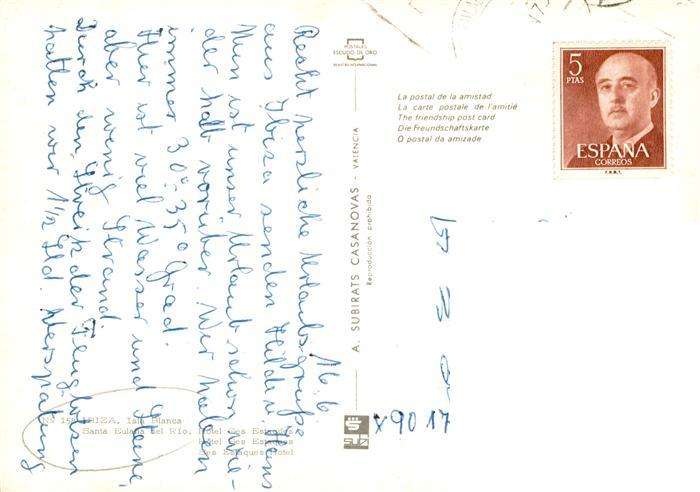 16.6.
Recht herzliche Urlaubsgrüße
aus Ibiza senden Hilde u. Hans
Nun ist unser Urlaub schon wie-
der halb vorüber. Wir haben
immer 30°-35° Grad
Hier ist viel Wasser und Steine
aber wenig Strand.
Durch den Streik der Fluglotsen
hatten wir 1 1/2 Std. Verspätung
IBIZA, Isla Blanca
Santa Eulalia del Río. Hotel Des Estaques
Hôtel Des Estaques
Des Estaques Hotel
A. SUBIRATS CASANOVAS - VALENCIA
Reproducción prohibida
POSTALES
ESCUDO DE ORO
La postal de la amistad
La carte postale de l'amitié
The friendship post card
Die Freundschaftskarte
O postal da amizade
5
PTAS
ESPAÑA
CORREOS
F.N.M.T.
x9017